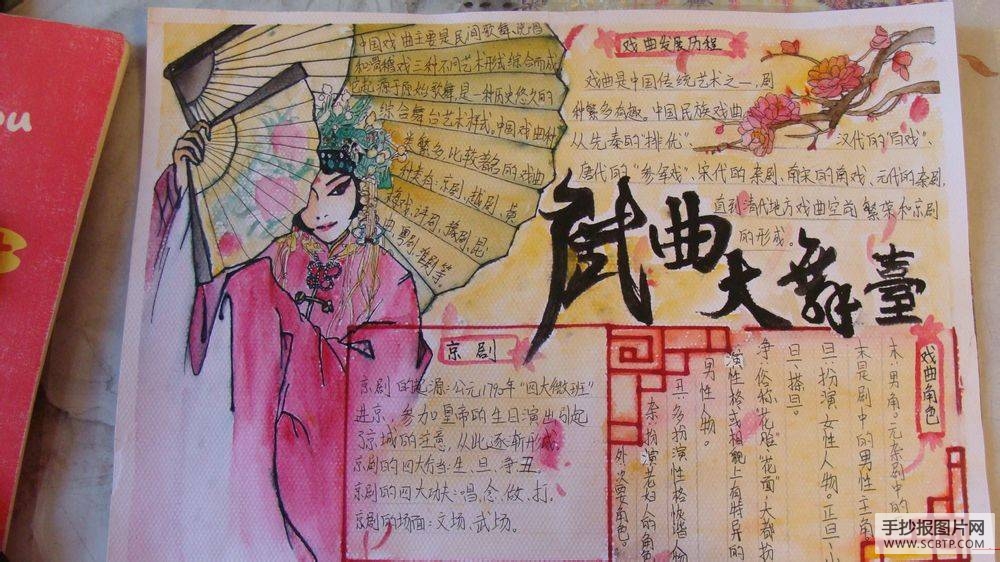 中国戏曲主要是民间歌舞、说唱
和滑稽戏三种不同艺术形式综合而成
它起源于原始歌舞,是一种历史悠久的
综合舞台艺术样式。中国戏曲种
类繁多,比较著名的戏曲
种类有:京剧、越剧、黄
梅戏、评剧、豫剧、昆
曲、粤剧、淮剧等。
戏曲发展历程
戏曲是中国传统艺术之一,剧
种繁多有趣。中国民族戏曲,
从先秦的“排优”、汉代的“百戏”、
唐代的“参军戏”、宋代的杂剧、南宋的南戏、元代的杂剧,
直到清代地方戏曲空前繁荣和京剧
的形成。
戲曲
大舞臺
京剧
京剧的起源:公元1790年“四大徽班”
进京,参加皇帝的生日演出引起
了京城的注意,从此逐渐形成。
京剧的四大行当:生、旦、净、丑。
京剧的四大功夫:唱、念、做、打。
京剧的场面:文场、武场。
戏曲角色
末:男角。元杂剧中的
末是剧中的男性主角
旦:扮演女性人物。正旦、小
旦、搽旦。
净:俗称“花脸”、“花面”,大都扮
演性格或相貌上有特异的
男性人物。
丑:多扮演性格诙谐人物
杂:扮演老妇人的角色
外:次要角色。
手抄报图片网
WWW.SCBTP.COM
ou